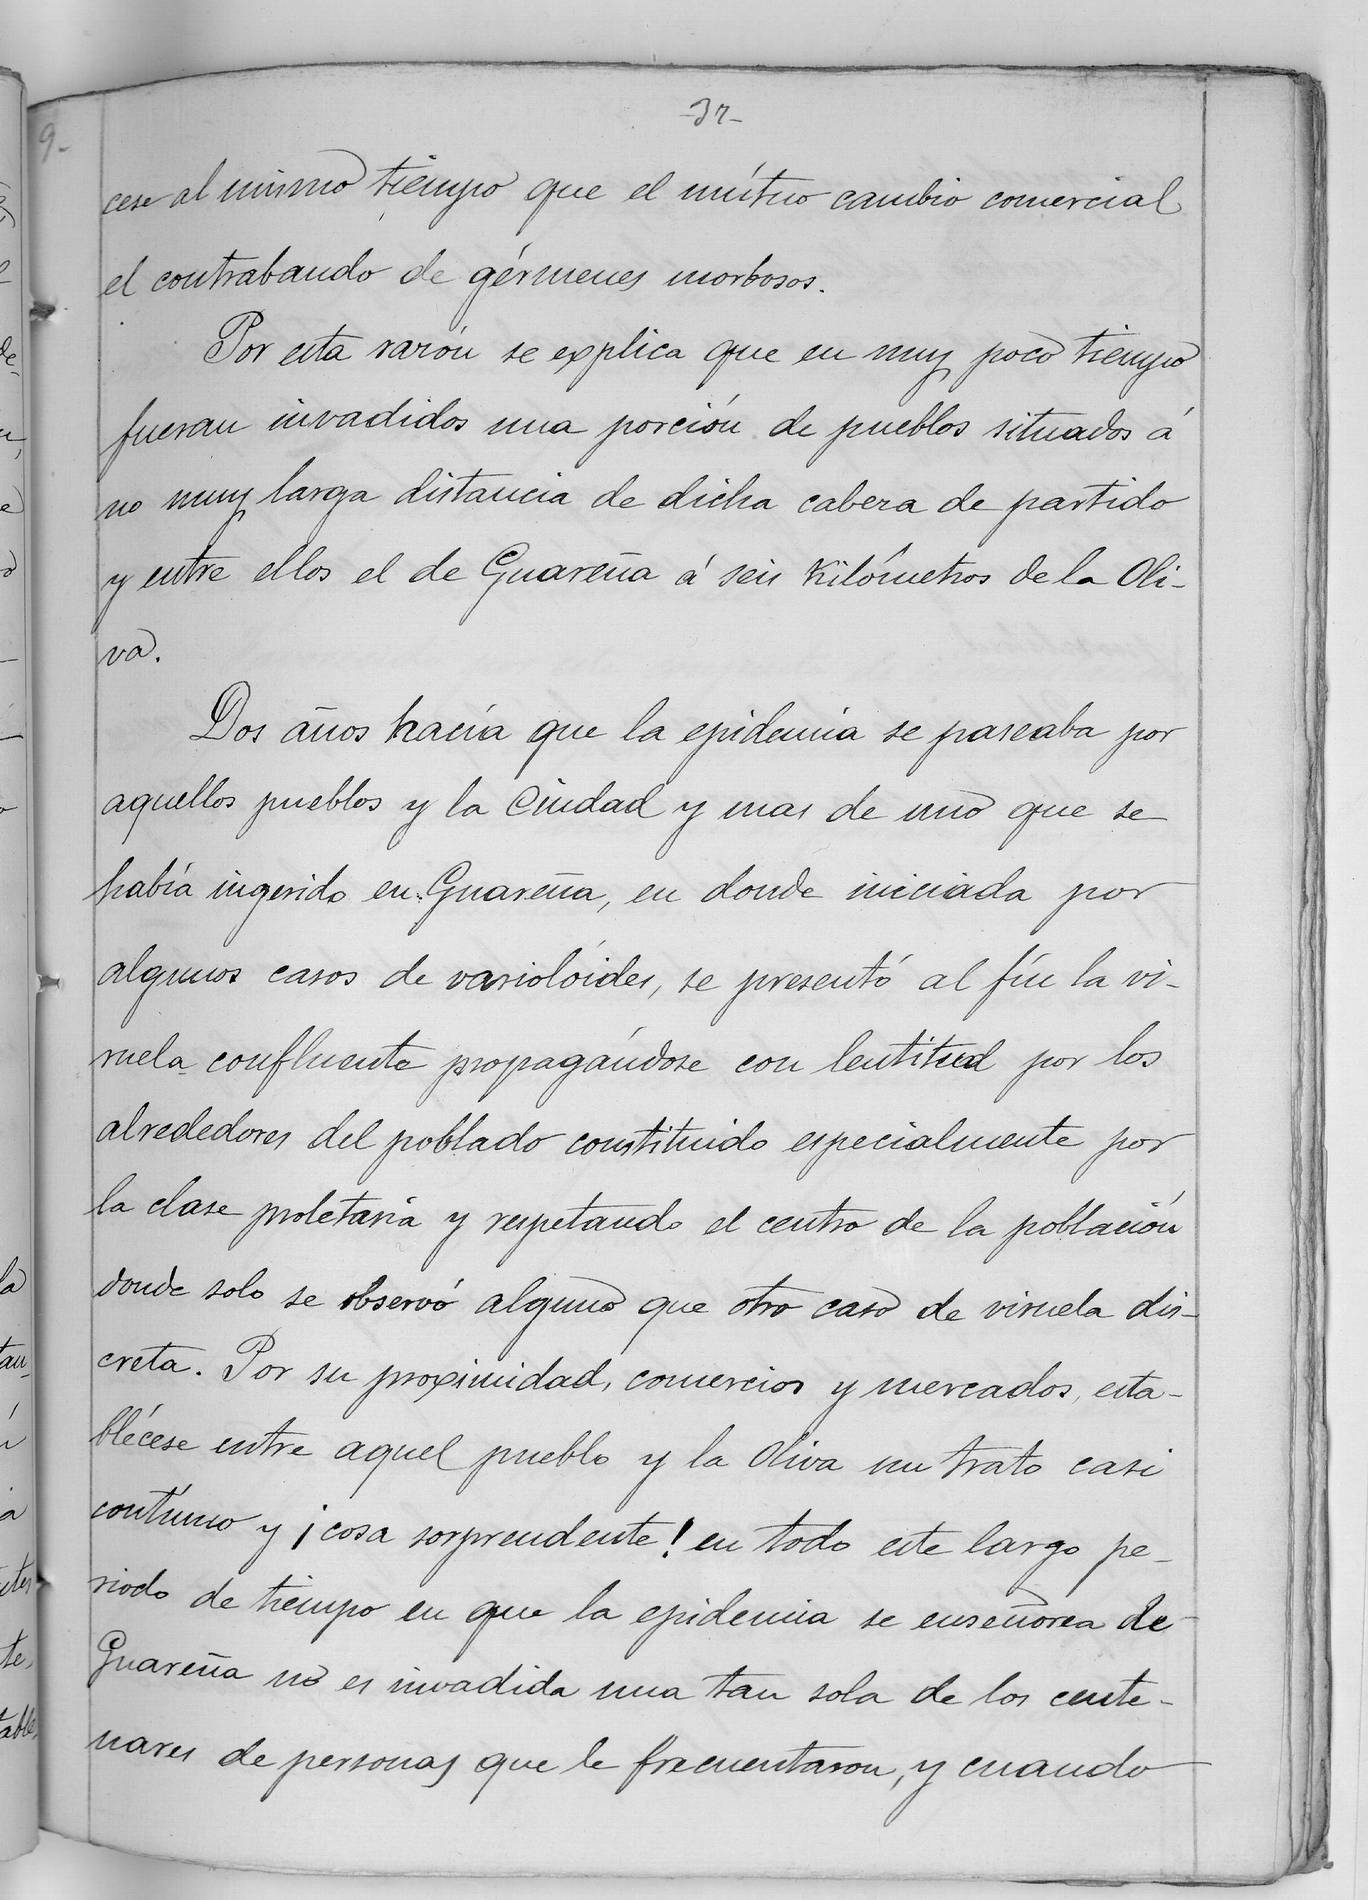 -37-
9-
cese al mismo tiempo que el mútuo cambio comercial
el contrabando de gérmenes morbosos.
Por esta razón se explica que en muy poco tiempo
fueran invadidos una porción de pueblos situados á
no muy larga distancia de dicha cabeza de partido
y entre ellos el de Guareña á seis Kilómetros de la Oli-
va.
Dos años hacía que la epidemia se paseaba por
aquellos pueblos y la Ciudad y mas de uno que se
había ingerido en Guareña, en donde iniciada por
algunos casos de varioloides, se presentó al fín la vi-
ruela confluente propagándose con lentitud por los
alrededores del poblado constituido especialmente por
la clase proletaria y respetando el centro de la población
donde solo se observó alguno que otro caso de viruela dis-
creta. Por su proximidad, comercios y mercados, esta-
blécese entre aquel pueblo y la Oliva un trato casi
contínuo y ¡cosa sorprendente! en todo este largo pe-
riodo de tiempo en que la epidemia se enseñorea de
Guareña no es invadida una tan sola de los cente-
nares de personas que le frecuentaron, y cuando